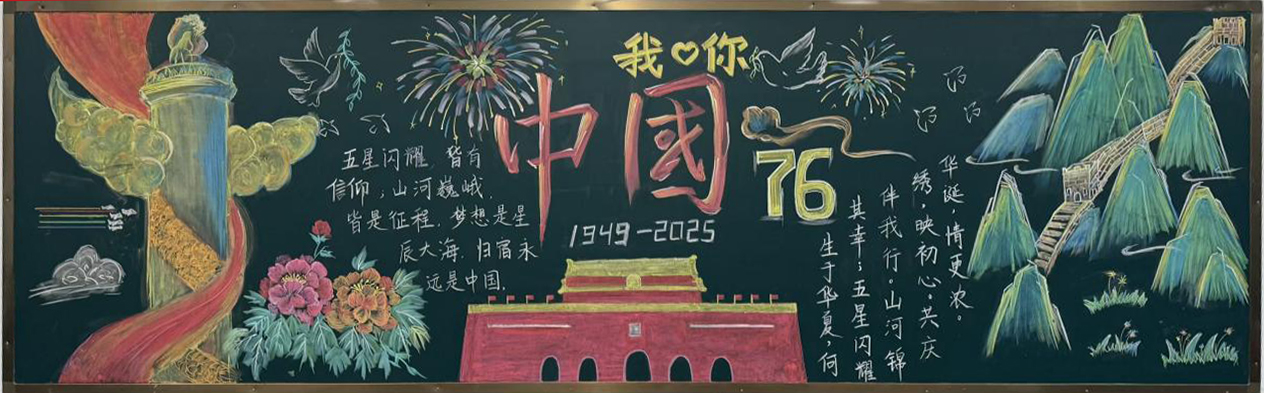 我♡你
中國
76
1949-2025
五星闪耀,皆有
信仰;山河巍峨,
皆是征程.梦想是星
辰大海.归宿永
远是中国.
生于华夏,何
其幸;五星闪耀
伴我行。山河锦
绣,映初心。共庆
华诞,情更浓。